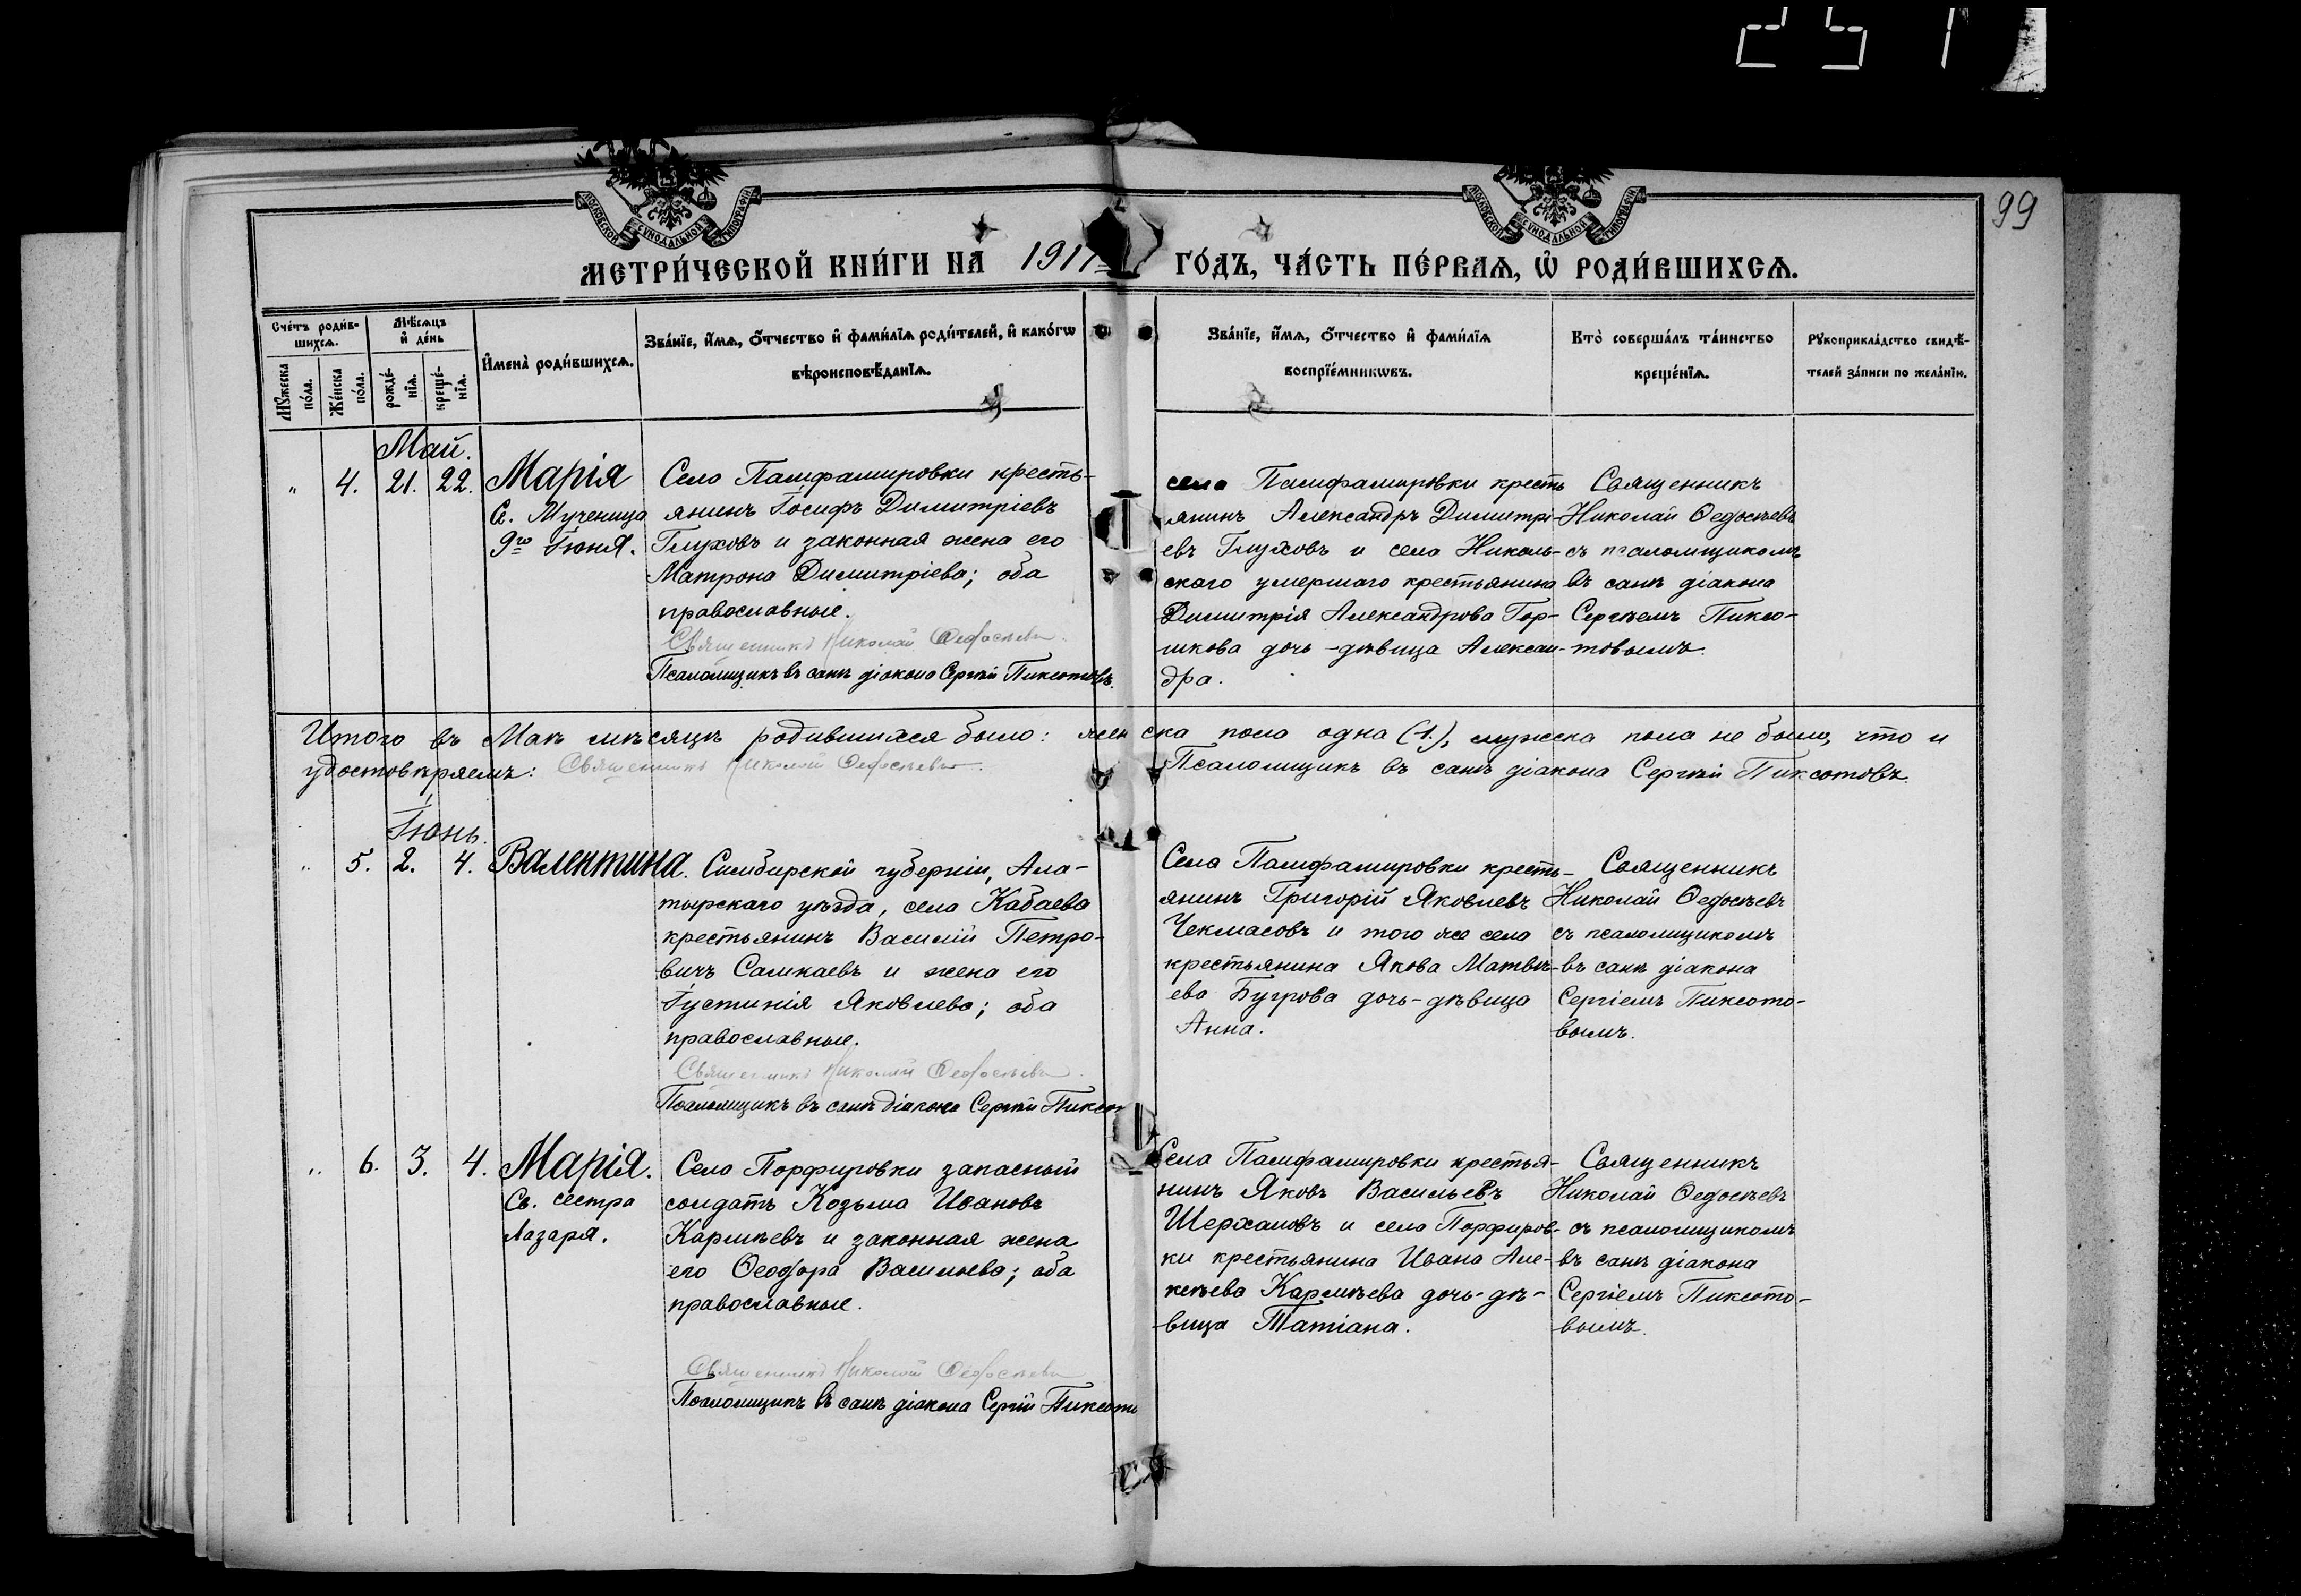 251
99
МОСКОВСКОЙ СѴНОДАЛЬНОЙ ТИПОГРАФІИ
МОСКОВСКОЙ СѴНОДАЛЬНОЙ ТИПОГРАФІИ
МЕТРИ́ЧЕСКОЙ КНИ́ГИ НА 1917 ГО́ДЪ, ЧА́СТЬ ПЕ́РВАѦ, Ѡ РОДИ́ВШИХСѦ.
Сче́тъ роди́в-
шихсѧ.
Мꙋ́жеска
по́ла.
Же́нска
по́ла.
Мѣ́сѧцъ
и де́нь
рожде́-
нїѧ.
креще́-
нїѧ.
И҆мена̀ роди́вшихсѧ.
Зва́нїе, и҆́мѧ, ѻ҆́тчество и҆ фами́лїѧ роди́телей, и҆ како́гѡ
вѣроисповѣ́данїѧ.
Зва́нїе, и҆́мѧ, ѻ҆́тчество и҆ фами́лїѧ
воспрїе́мникѡвъ.
Кто̀ соверша́лъ та́инство
креще́нїѧ.
Рꙋкоприкла́дство свидѣ́-
телей за́писи по жела́нїю.
Май.
„ 4. 21. 22. Марія
Св. Мученица
9го Іюня.
Село Памфамировки кресть-
янинъ Іосифъ Димитріевъ
Глуховъ и законная жена его
Матрона Димитріева; оба
православные.
Священникъ Николай Ѳедосѣевъ.
Псаломщикъ въ санѣ діакона Сергѣй Пиксотовъ.
села Памфамировки кресть
янинъ Александръ Димитрі-
евъ Глуховъ и села Николь-
скаго умершаго крестьянина
Димитрія Александрова Гор-
шкова дочь-дѣвица Алексан-
дра.
Священникъ
Николай Ѳедосѣевъ
съ псаломщикомъ
въ санѣ діакона
Сергѣемъ Пиксо-
товымъ.
Итого въ Маѣ мѣсяцѣ родившихся было: женска пола одна (1.), мужска пола не было, что и
удостовѣряемъ: Священникъ Николай Ѳедосѣевъ. Псаломщикъ въ санѣ діакона Сергѣй Пиксотовъ.
Іюнь.
„ 5. 2. 4. Валентина.
Симбирской губерніи, Ала-
тырскаго уѣзда, села Кабаева
крестьянинъ Василій Петро-
вичъ Самкаевъ и жена его
Іустинія Яковлева; оба
православные.
Священникъ Николай Ѳедосѣевъ.
Псаломщикъ въ санѣ діакона Сергѣй Пиксот
Села Памфамировки кресть-
янинъ Григорій Яковлевъ
Чекмасовъ и того же села
крестьянина Якова Матвѣ-
ева Бугрова дочь-дѣвица
Анна.
Священникъ
Николай Ѳедосѣевъ
съ псаломщикомъ
въ санѣ діакона
Сергіемъ Пиксото-
вымъ.
„ 6. 3. 4. Марія.
Св. сестра
Лазаря.
Село Порфировки запасный
солдатъ Козьма Ивановъ
Кармѣевъ и законная жена
его Ѳеодора Васильева; оба
православные.
Священникъ Николай Ѳедосѣевъ
Псаломщикъ въ санѣ діакона Сергій Пиксото
Села Памфамировки крестья-
нинъ Яковъ Васильевъ
Шерхановъ и села Порфиров-
ки крестьянина Ивана Але-
ксѣева Кармѣева дочь-дѣ-
вица Татіана.
Священникъ
Николай Ѳедосѣевъ
съ псаломщикомъ
въ санѣ діакона
Сергіемъ Пиксото-
вымъ.